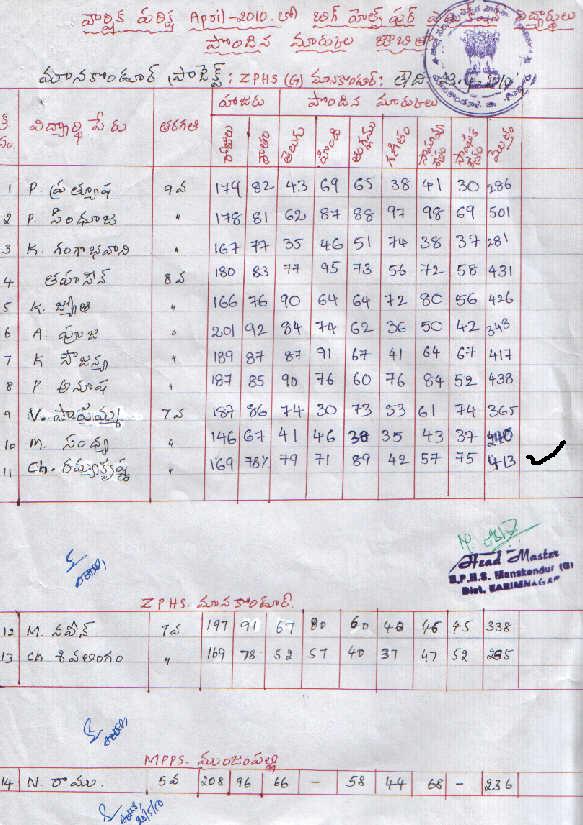 వార్షిక పరీక్ష April-2010. లో బిగ్ హెల్ప్ ఫర్ విద్యార్థులు
పొందిన మార్కుల
మానకొండూర్ ప్రాజెక్ట్: ZPHS (G) మానకొండూర్:
హాజరు పొందిన మార్కులు
విద్యార్థి పేరు తరగతి హాజరు శాతం తెలుగు హిందీ ఇంగ్లీషు గణితం మొత్తం
1 P. ప్రత్యూష 9వ 179 82 43 69 65 38 41 30 286
2 P. సింధూజ " 178 81 62 87 88 97 98 69 501
3 K. గంగాభవాని 167 77 35 46 51 74 38 37 281
4 తహసీన్ 8వ 180 83 77 95 73 56 72 58 431
5 K. జ్యోతి " 166 76 90 64 64 72 80 56 426
6 A. పూజ " 201 92 84 74 62 36 50 42 348
7 K సౌజన్య " 189 87 87 91 67 41 64 67 417
8 P అనూష " 187 85 90 76 60 76 84 52 438
9 N. పోషమ్మ 7వ 187 86 74 30 73 53 61 74 365
10 M. సంధ్య " 146 67 41 46 38 35 43 37 240
11 Ch. రమ్యకృష్ణ " 169 78% 79 71 89 42 57 75 413
Head Master
Z.P.H.S. Manakondur (G)
Dist. KARIMNAGAR
ZPHS. మానకొండూర్.
12 M. నవీన్ 7వ 197 91 67 80 60 46 45 338
13 Ch. శివలింగం " 169 78 52 57 40 37 47 52 285
MPPS. ముంజంపల్లి
14 N. రాము. 5వ 208 96 66 - 58 44 68 - 236